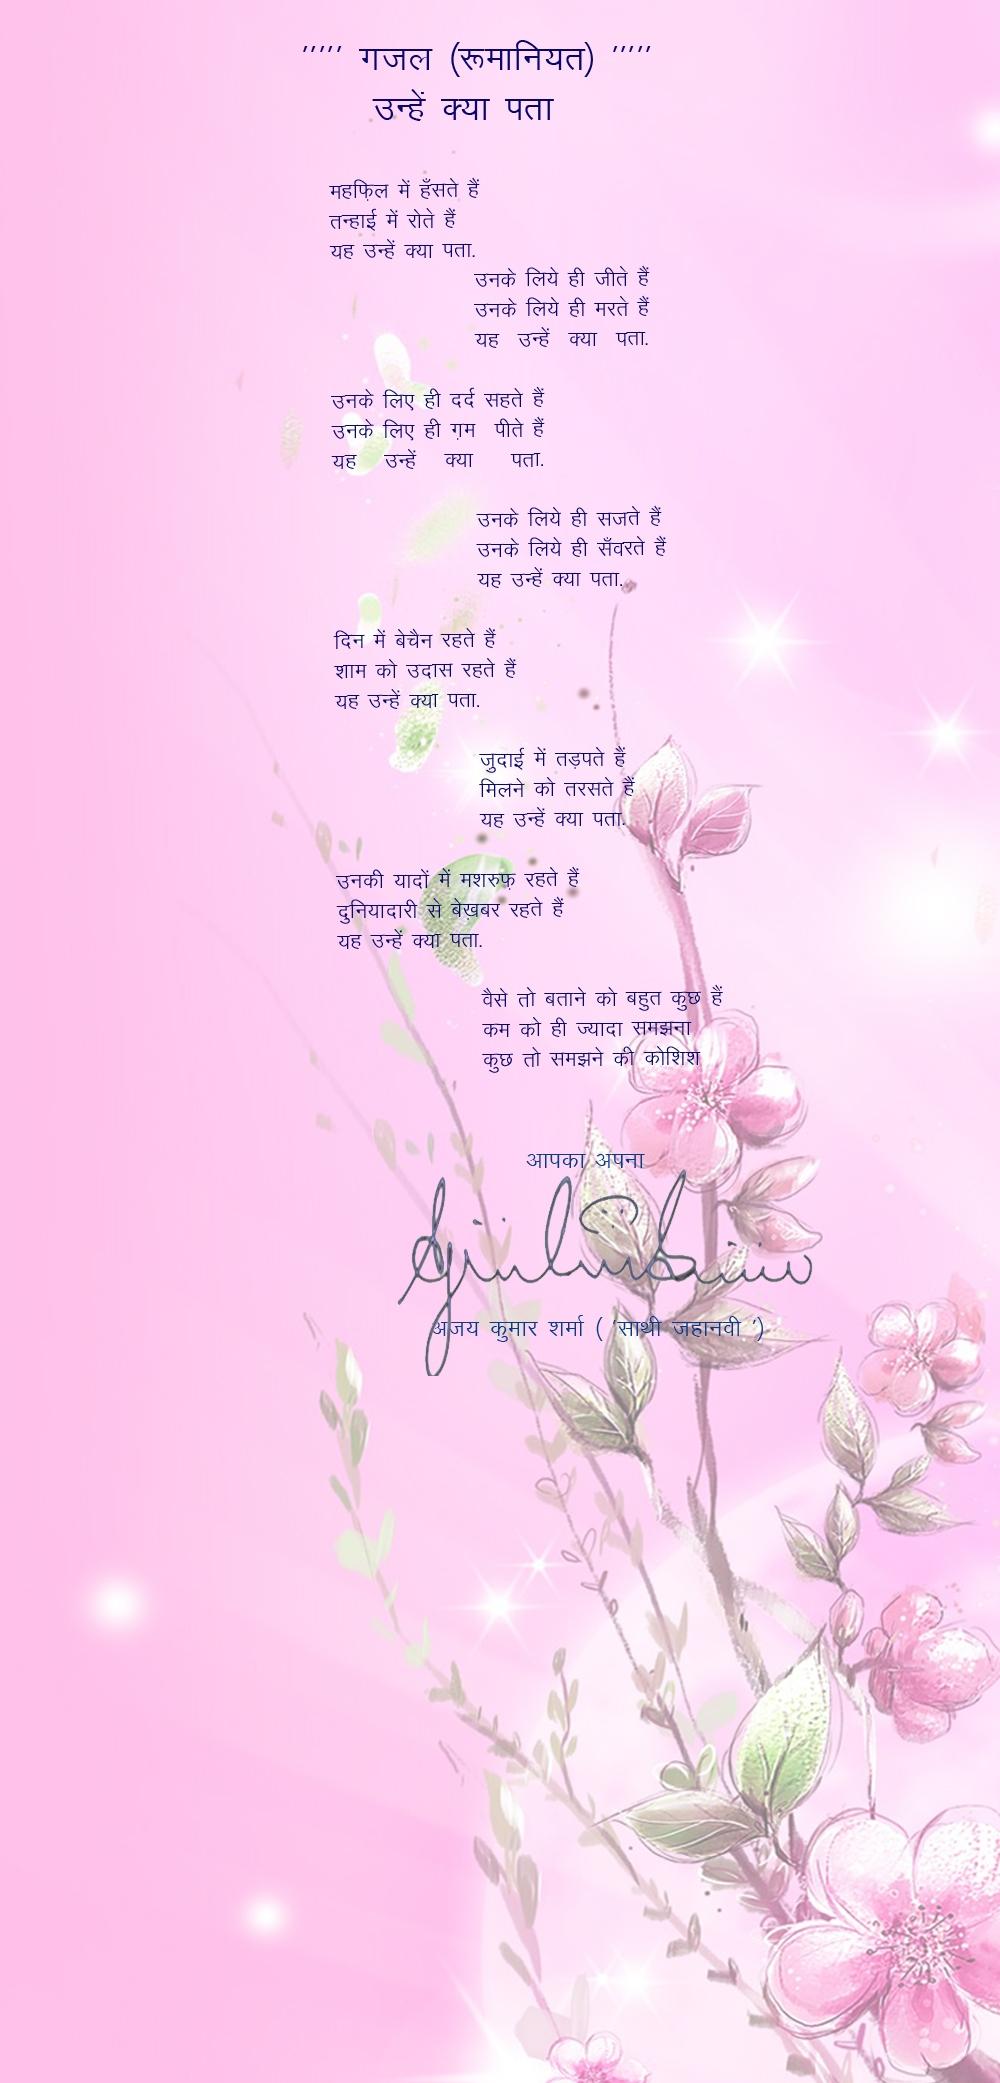 ''''' गजल (रूमानियत) '''''
उन्हें क्या पता
महफ़िल में हँसते हैं
तन्हाई में रोते हैं
यह उन्हें क्या पता.
उनके लिये ही जीते हैं
उनके लिये ही मरते हैं
यह उन्हें क्या पता.
उनके लिए ही दर्द सहते हैं
उनके लिए ही ग़म पीते हैं
यह उन्हें क्या पता.
उनके लिये ही सजते हैं
उनके लिये ही सँवरते हैं
यह उन्हें क्या पता.
दिन में बेचैन रहते हैं
शाम को उदास रहते हैं
यह उन्हें क्या पता.
जुदाई में तड़पते हैं
मिलने को तरसते हैं
यह उन्हें क्या पता.
उनकी यादों में मशरुफ़ रहते हैं
दुनियादारी से बेख़बर रहते हैं
यह उन्हें क्या पता.
वैसे तो बताने को बहुत कुछ हैं
कम को ही ज्यादा समझना
कुछ तो समझने की कोशिश
आपका अपना
अजय कुमार शर्मा ( 'साथी जहानवी ')